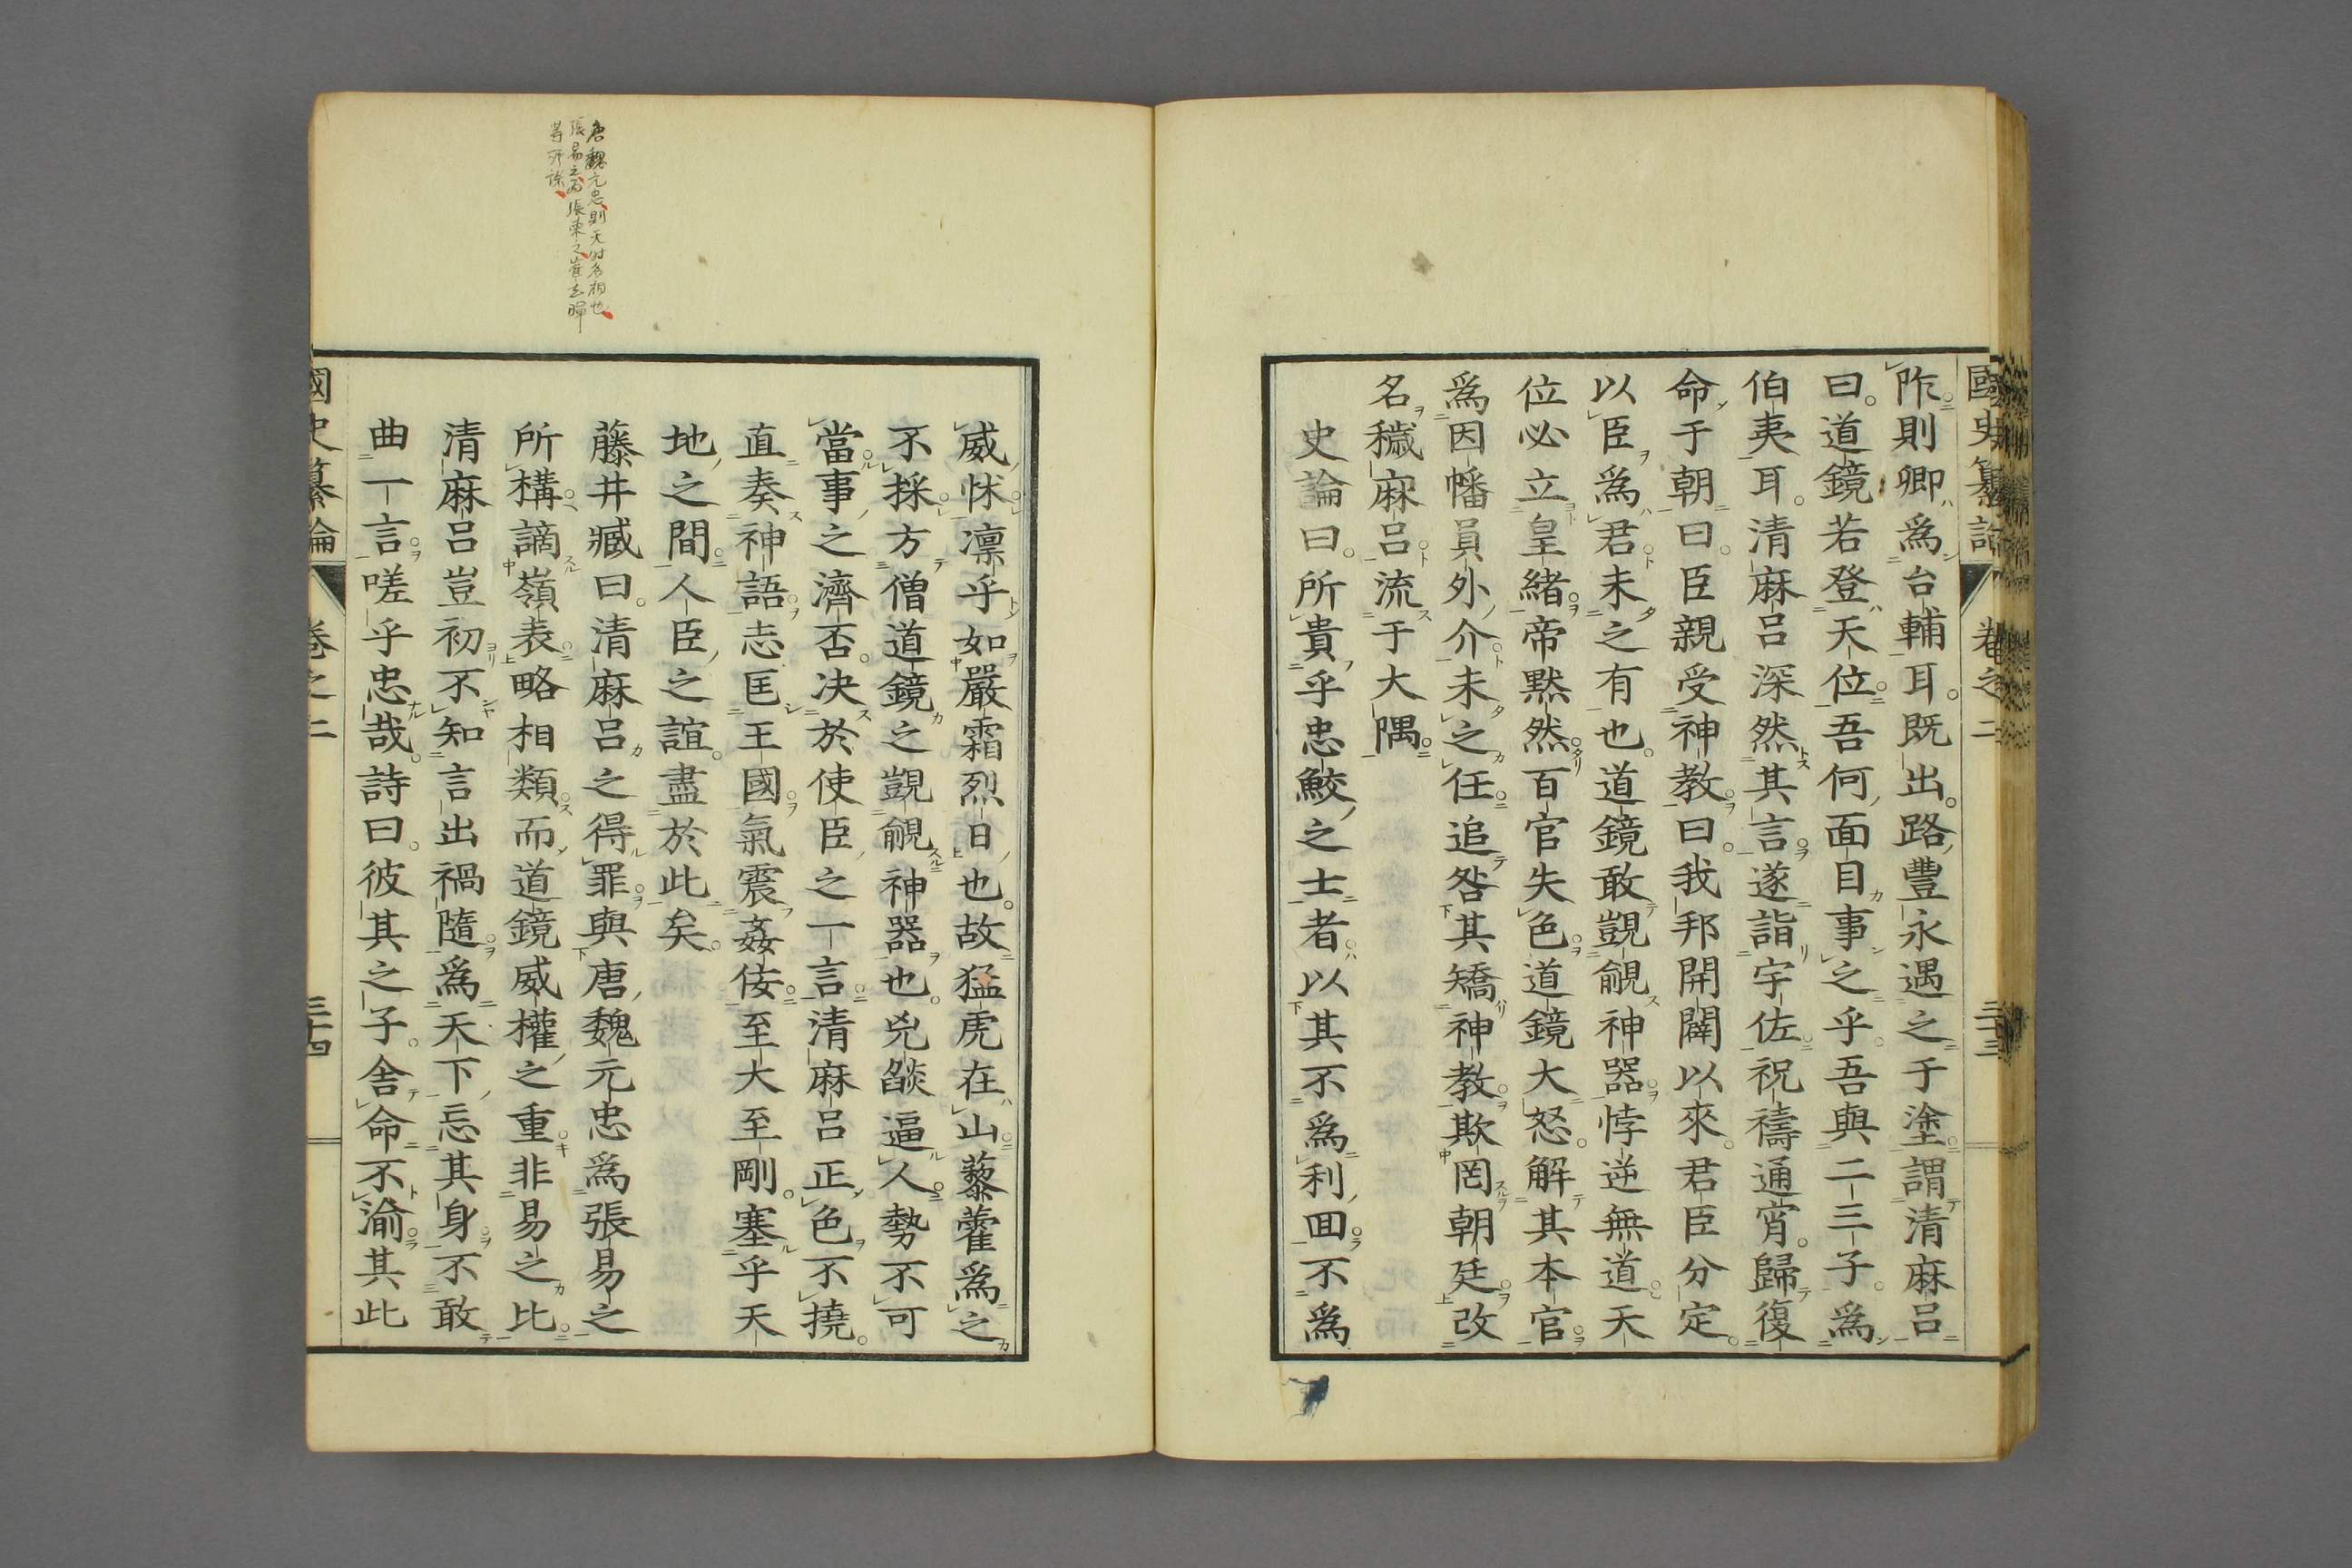 國史纂論 卷之二 三十三
阼則卿爲台輔耳。既出。路豐永遇之于塗。謂清麻呂
曰。道鏡若登天位。吾何面目事之乎。吾與二三子。爲
伯夷耳。清麻呂深然其言。遂詣宇佐。祝禱通宵。歸復
命于朝曰。臣親受神教。曰。我邦開闢以來。君臣分定。
以臣爲君。未之有也。道鏡敢覬覦神器。悖逆無道。天
位必立皇緒。帝默然。百官失色。道鏡大怒。解其本官。
爲因幡員外介。未之任。追咎其矯神教。欺罔朝廷。改
名穢麻呂。流于大隅。
史論曰。所貴乎忠鯁之士者。以其不爲利回。不爲
威怵。凛乎如嚴霜烈日也。故猛虎在山。藜藿爲之
不採。方僧道鏡之覬覦神器也。兇燄逼人。勢不可
當。事之濟否。决於使臣之一言。清麻呂正色不撓。
直奏神語。志匡王國。氣震姦佞。至大至剛。塞乎天
地之間。人臣之誼。盡於此矣。
藤井臧曰。清麻呂之得罪。與唐魏元忠爲張易之
所構。謫嶺表。略相類。而道鏡威權之重。非易之比。
清麻呂豈初不知言出禍隨。爲天下忘其身。不敢
曲一言。嗟乎忠哉。詩曰。彼其之子。舍命不渝。其此
國史纂論 卷之二 三十四
唐魏元忠則天時名相也
張易之為張柬之崔玄暉
等所誅